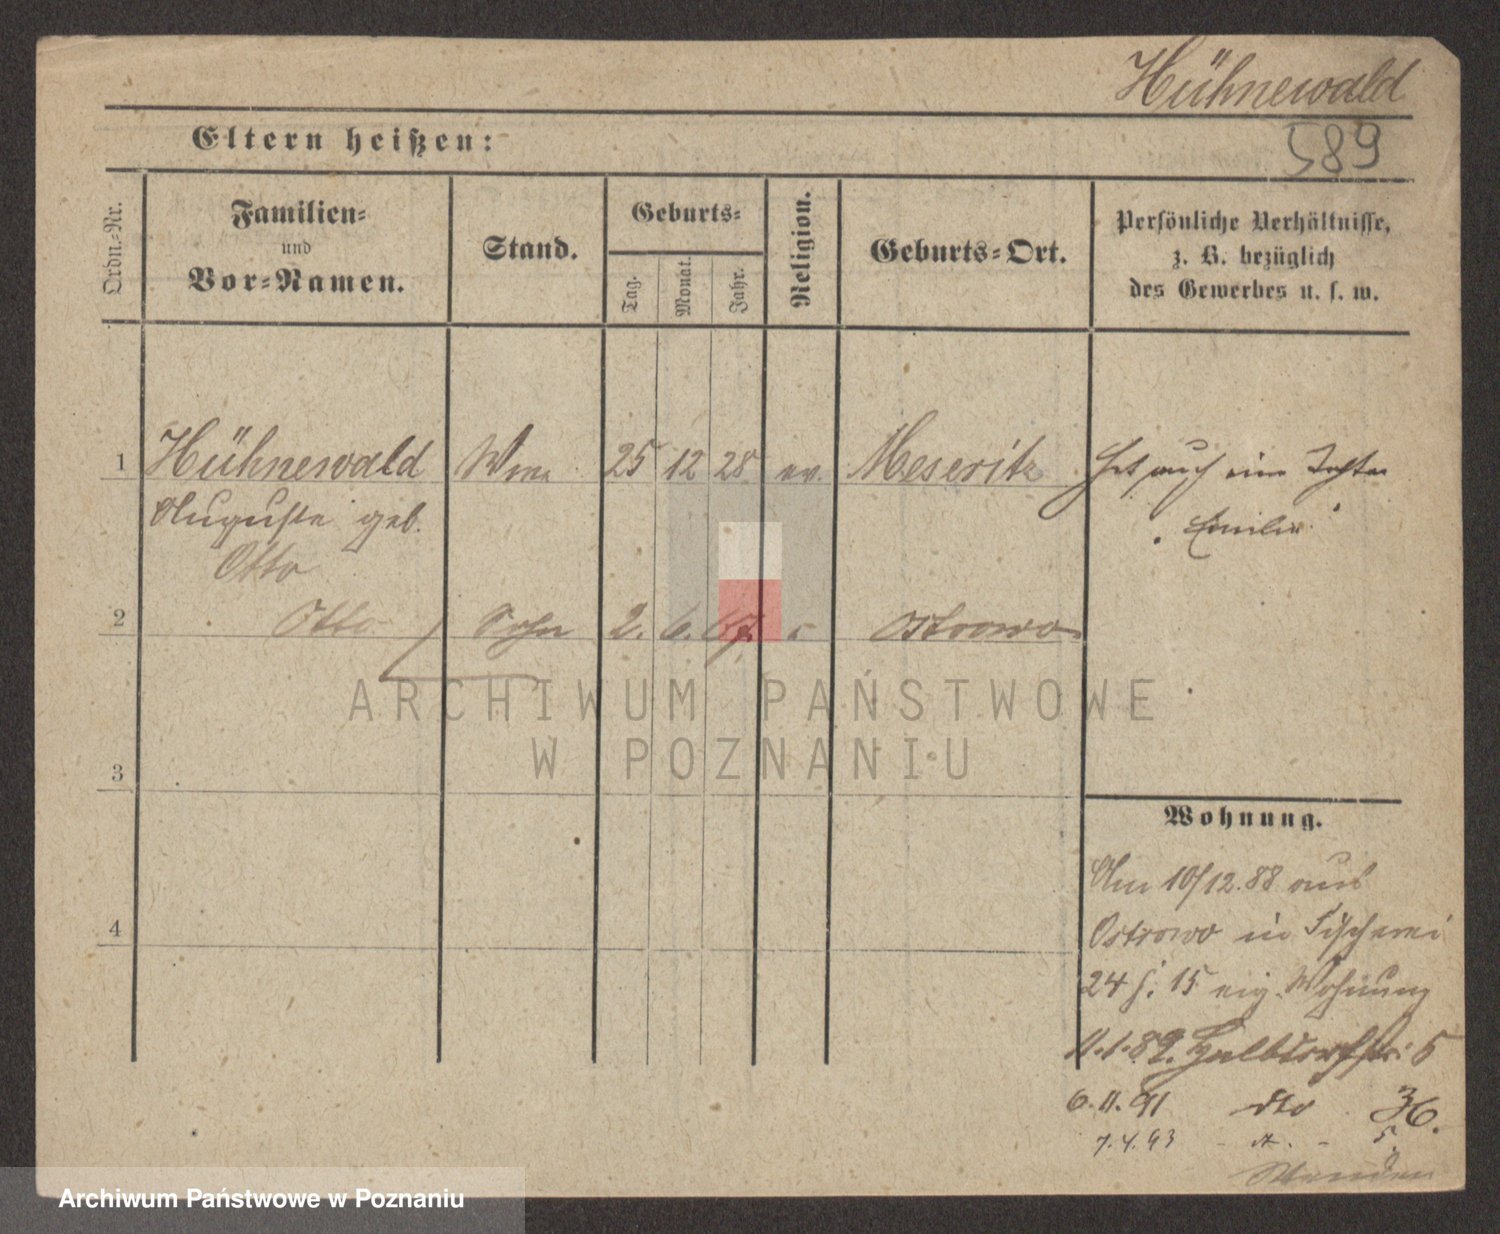 Hühnewald
589
Eltern heißen:
Ordn.-Nr.
Familien-
und
Vor-Namen.
Stand.
Geburts-
Tag.
Monat.
Jahr.
Religion.
Geburts-Ort.
Persönliche Verhältnisse,
z. B. bezüglich
des Gewerbes u. s. w.
1 Hühnewald Wwe 25 12 28 ev. Meseritz Hat auch eine Tochter
Auguste geb. "Emilie"
Otto
2 Otto Sohn 2. 6. 67 Ostrowo
ARCHIWUM PAŃSTWOWE
W POZNANIU
3
Wohnung.
Am 10/12.88 aus
4 Ostrowo in Fischerei
24 j. 15 eig. Wohnung
11.1.89. Halbdorfstr. 5
6.11.91 dto 36.
7.4.93 5
Archiwum Państwowe w Poznaniu